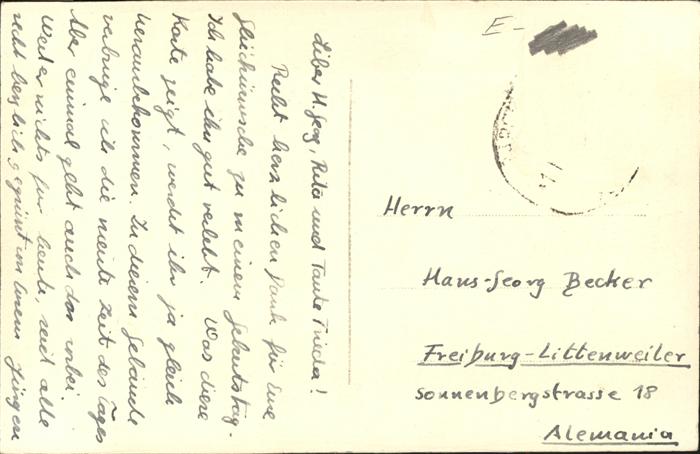 Lieber H. Georg, Rita und Tante Frieda!
Recht herzlichen Dank für Eure
Glückwünsche zu meinem Geburtstag.
Ich habe ihn gut verlebt. Was diese
Karte zeigt, werdet ihr ja gleich
herausbekommen. In diesem Gebäude
verbringe ich die meiste Zeit des Tages
Aber einmal geht auch das vorbei.
Weiter nichts für heute, seid alle
recht herzlich gegrüsst von Eurem Jürgen
E-
Herrn
Hans-Georg Becker
Freiburg-Littenweiler
Sonnenbergstrasse 18
Alemania